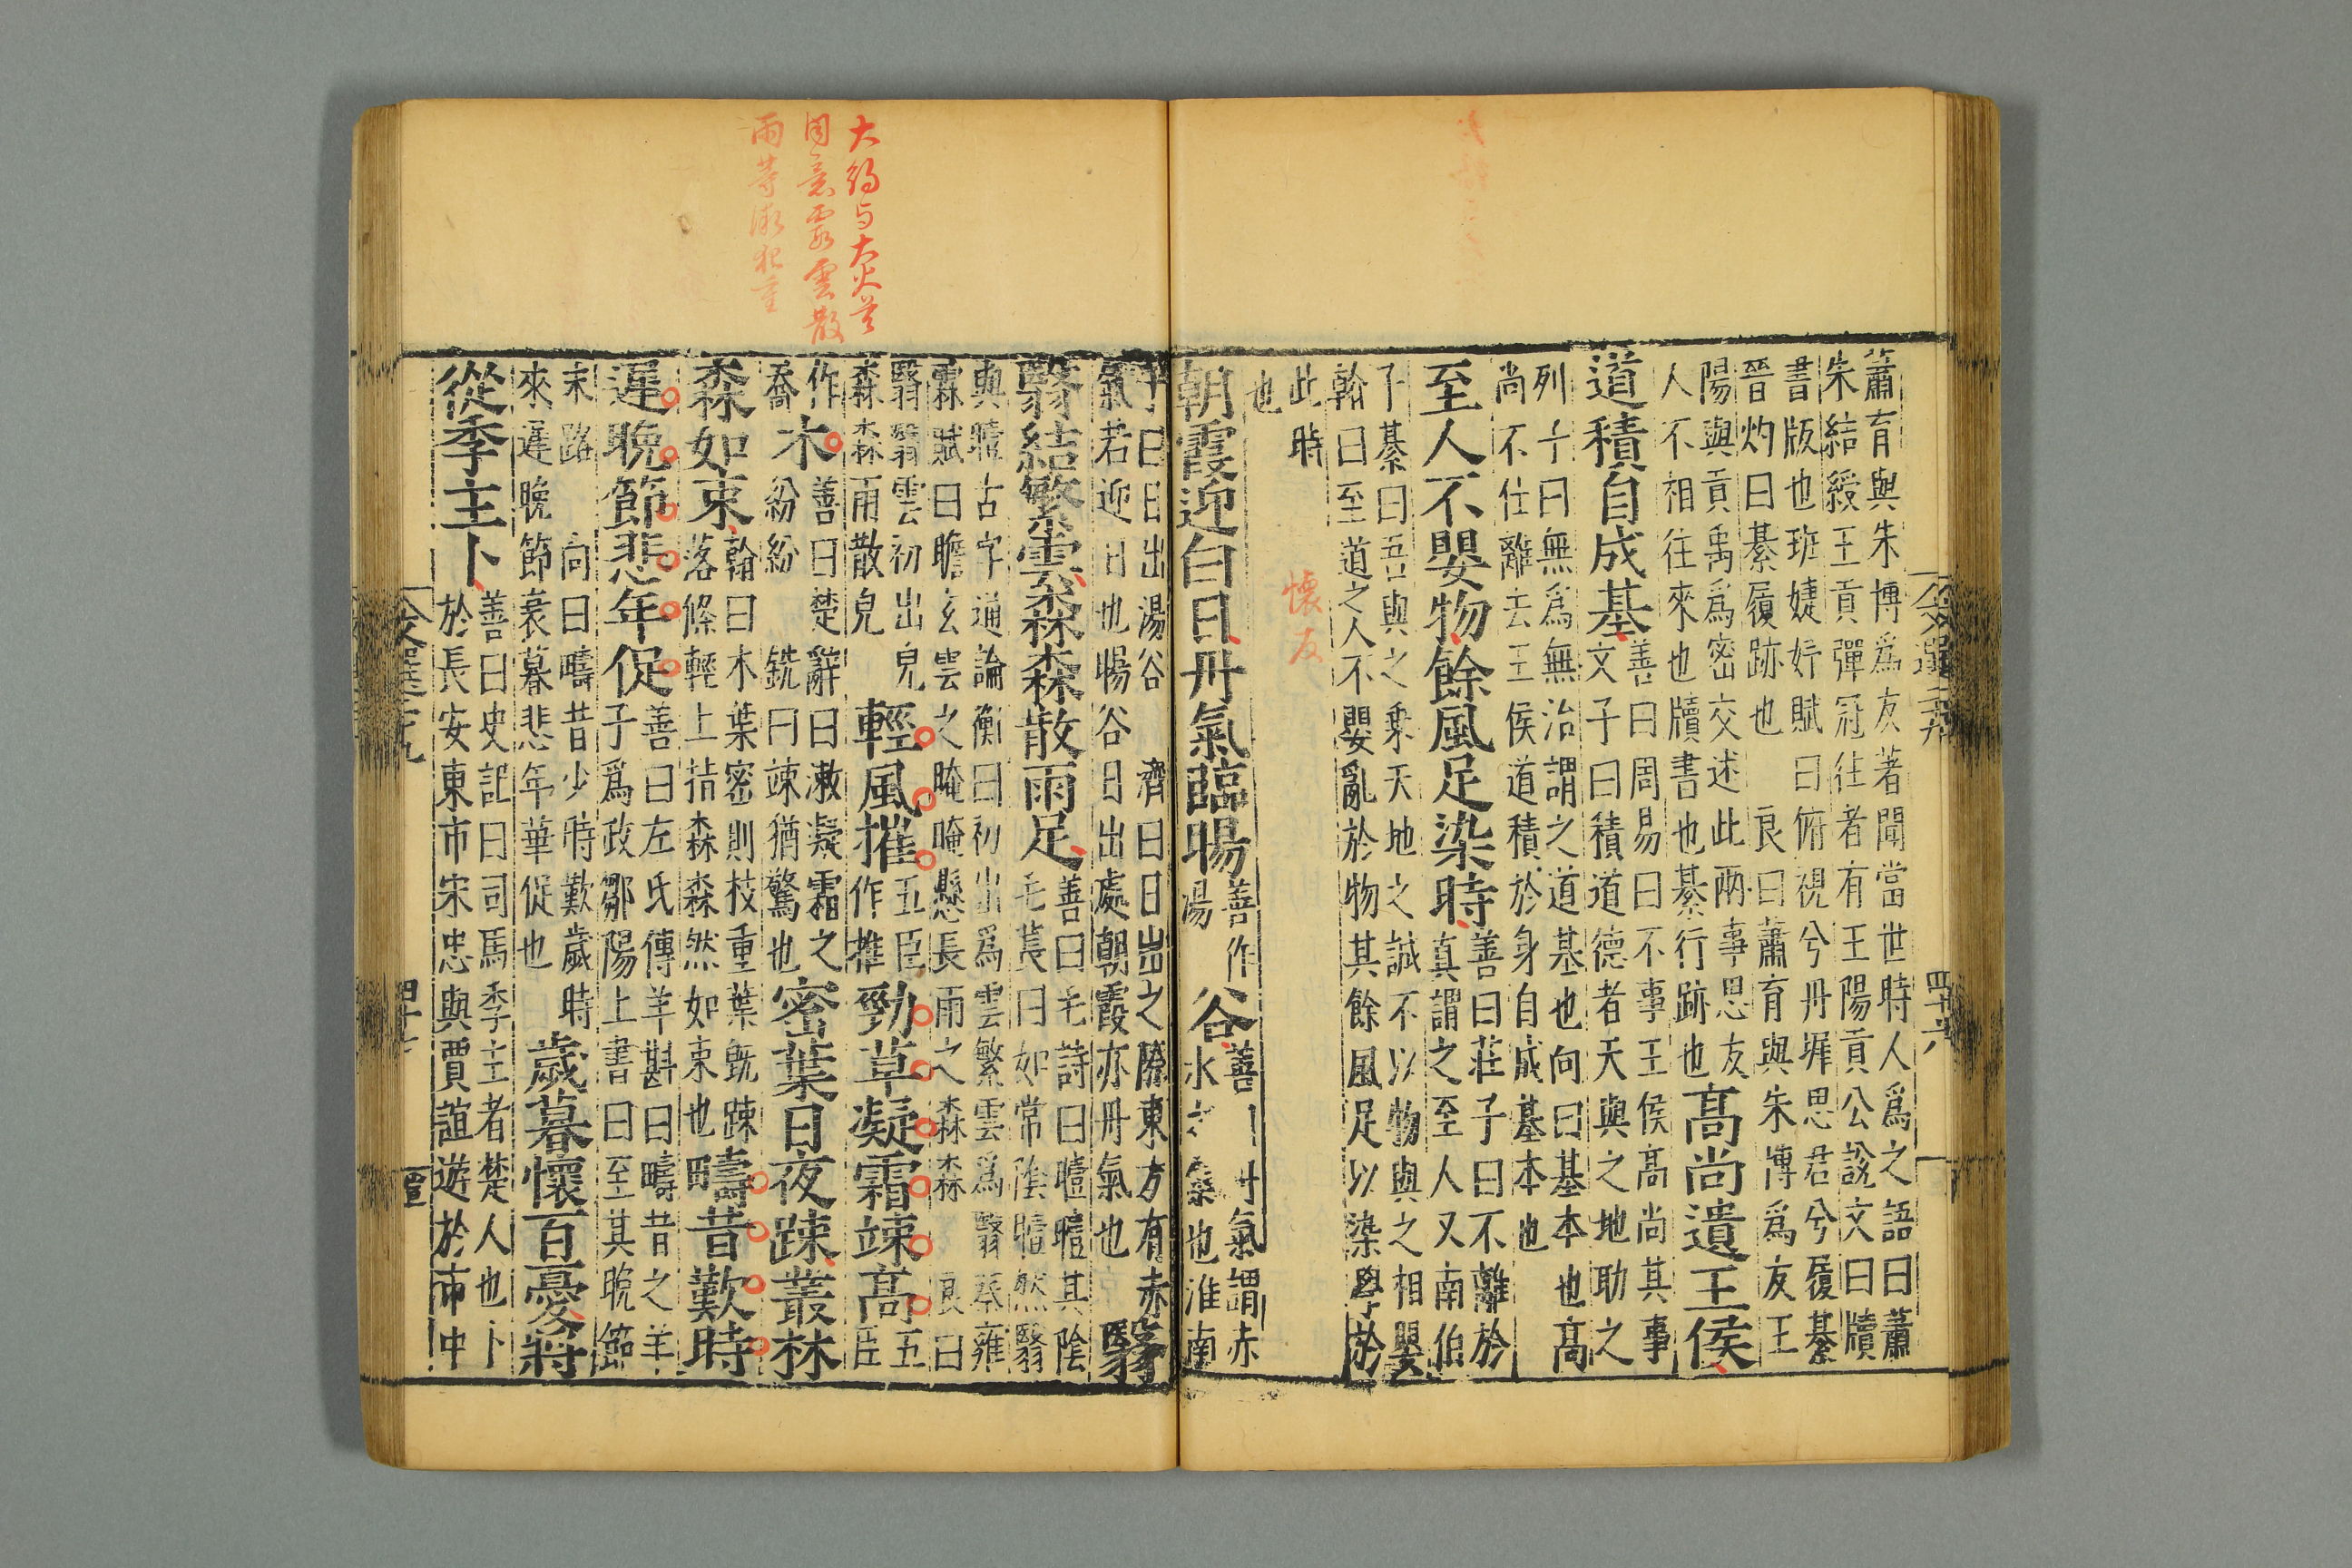 蕭有與朱博爲友著聞當世時人爲之語曰蕭
朱結綬王貢彈冠往者有王陽貢公說文曰牘
書版也班婕妤賦曰俯視兮丹墀思君兮履綦
晉灼曰綦履跡也 良曰蕭育與朱博爲友王
陽與貢禹爲密交述此兩事思友
人不相往來也牘書也綦行跡也
高尚遺王侯
道積自成基
善曰周易曰不事王侯高尚其事
文子曰積道德者天與之地助之
列子曰無爲無治謂之道基也向曰基本也高
尚不仕離去王侯道積於身自成基本也
至人不嬰物餘風足染時
善曰莊子曰不離於
真謂之至人又南伯
子綦曰吾與之乘天地之誠不以物與之相嬰
翰曰至道之人不嬰亂於物其餘風足以染學於
此時
也
懷友
朝霞迎白日丹氣臨暘
善作
湯
谷
善 丹氣謂赤
水 氣也淮南
子曰日出湯谷 濟曰日出之際東方有赤
氣若迎日也暘谷日出處朝霞亦丹氣也
翳
翳結繁雲森森散雨足
善曰毛詩曰曀曀其陰
毛萇曰如常陰曀然翳
與曀古字通論衡曰初出爲雲繁雲爲翳蔡雍
霖賦曰瞻玄雲之晻晻懸長雨之森森 良曰
翳翳雲初出皃
森森雨散皃
輕風摧
五臣
作推
勁草凝霜竦高
五
臣
作
喬
木
善曰楚辭曰漱凝霜之
紛紛 銑曰竦猶驚也
密葉日夜踈叢林
森如束
翰曰木葉密則枝重葉既踈
落條輕上指森森然如束也
疇昔歎時
遲晚節悲年促
善曰左氏傳羊斟曰疇昔之羊
子爲政鄒陽上書曰至其晚節
末路 向曰疇昔少時歎歲時
來遲晚節衰暮悲年華促也
歲暮懷百憂將
從季主卜
善曰史記曰司馬季主者楚人也卜
於長安東市宋忠與賈誼遊於市中
大約与大火首
同意霞雲散
雨等微犯重
文選二十九
四十六
文選二十九